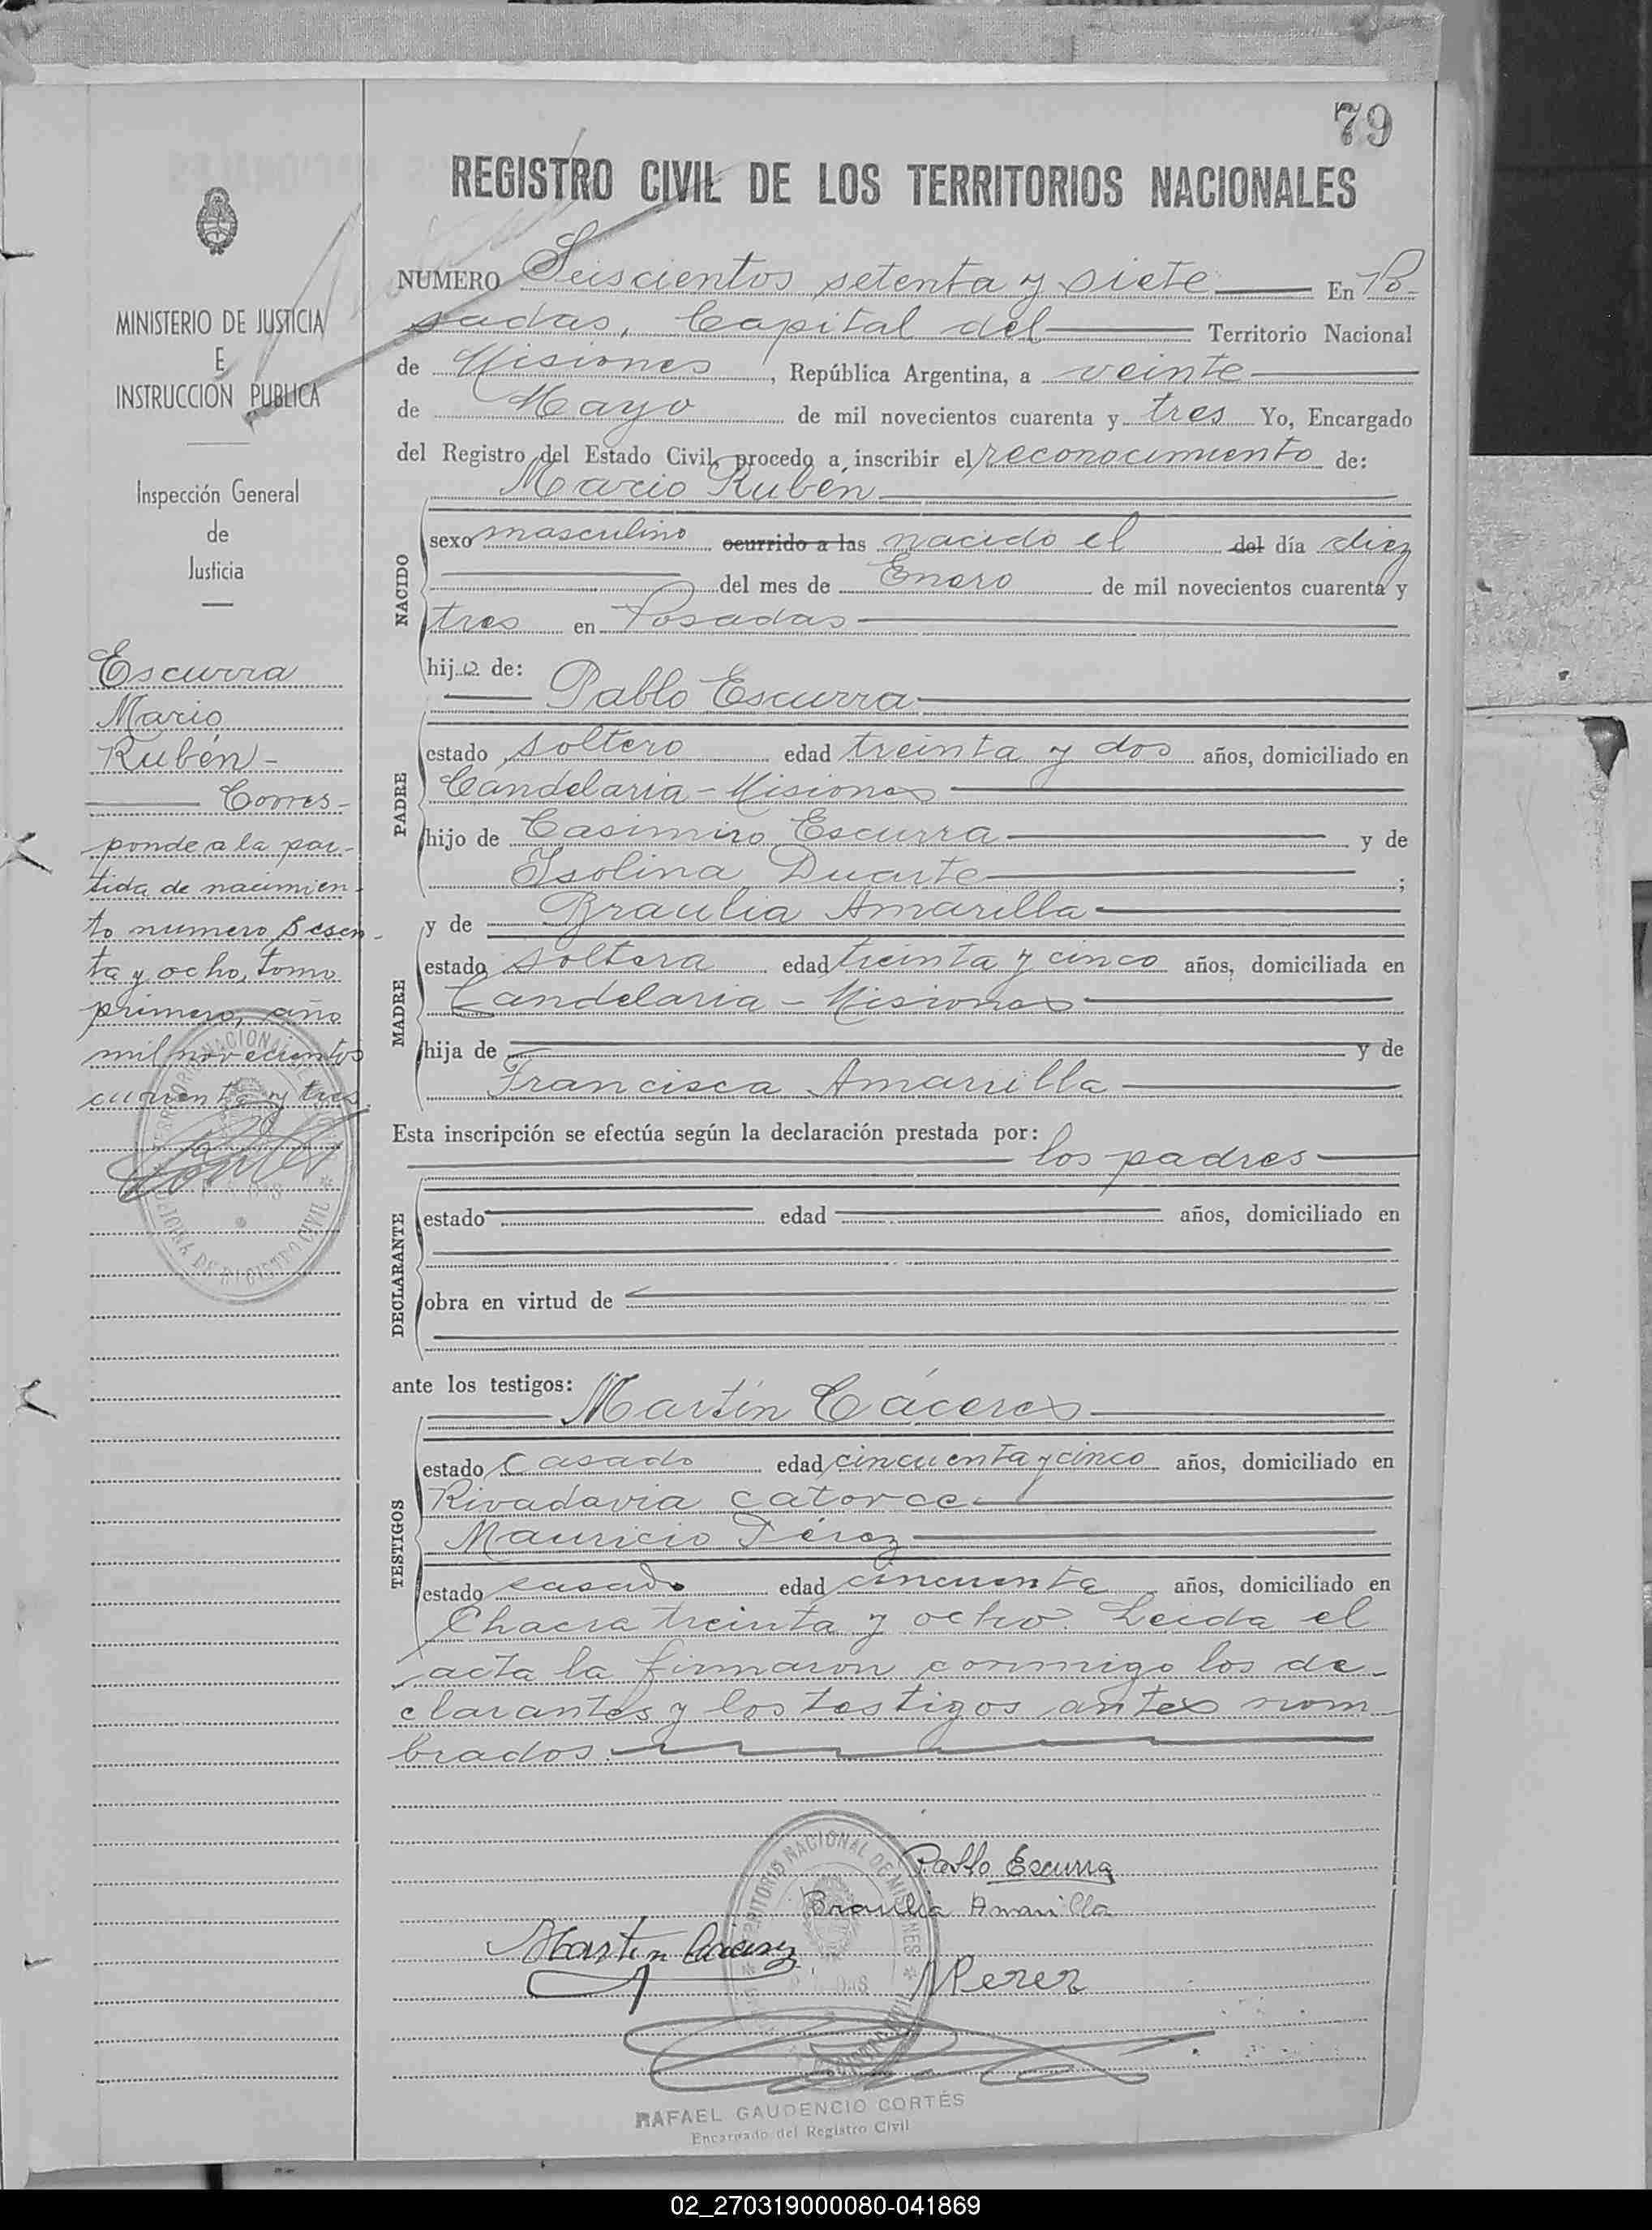 79
REGISTRO CIVIL DE LOS TERRITORIOS NACIONALES
MINISTERIO DE JUSTICIA
E
INSTRUCCIÓN PÚBLICA
Inspección General
de
Justicia
Escurra
Mario
Rubén -
Corres-
ponde a la par-
tida de nacimien-
to numero sesen-
ta y ocho, tomo
primero, año
mil novecientos
cuarenta y tres.
NUMERO Seiscientos setenta y siete En Po-
sadas, Capital del Territorio Nacional
de Misiones, República Argentina, a veinte
de Mayo de mil novecientos cuarenta y tres Yo, Encargado
del Registro del Estado Civil, procedo a inscribir el reconocimiento de:
Mario Rubén
NACIDO
sexo masculino ocurrido a las nacido el del día diez
del mes de Enero de mil novecientos cuarenta y
tres en Posadas
hijo de:
Pablo Escurra
PADRE
estado soltero edad treinta y dos años, domiciliado en
Candelaria - Misiones
hijo de Casimiro Escurra y de
Isolina Duarte ;
y de Braulia Amarilla
MADRE
estado soltera edad treinta y cinco años, domiciliada en
Candelaria - Misiones
hija de y de
Francisca Amarilla
Esta inscripción se efectúa según la declaración prestada por:
los padres
DECLARANTE
estado edad años, domiciliado en
obra en virtud de
ante los testigos:
Martín Cáceres
TESTIGOS
estado casado edad cincuenta y cinco años, domiciliado en
Rivadavia catorce
Mauricio Pérez
estado casado edad cincuenta años, domiciliado en
Chacra treinta y ocho. Leida el
acta la firmaron conmigo los de-
clarantes y los testigos antes nom-
brados.
TERRITORIO NACIONAL DE MISIONES
Pablo Escurra
Braulia Amarilla
Martin Cáceres
M Perez
RAFAEL GAUDENCIO CORTÉS
Encargado del Registro Civil
02_270319000080-041869